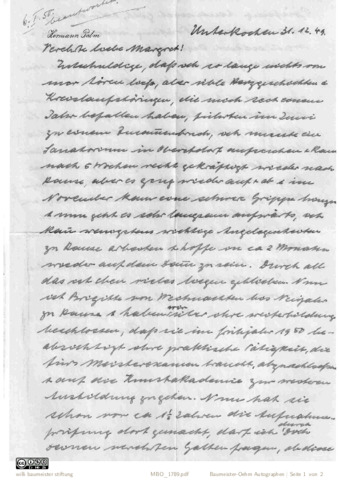 6. I. 50. beantwortet
Hermann Palm
Unterkochen 31.12.49.
Verehrte liebe Margret!
Entschuldige, dass ich so lange nichts von
mir hören liess, aber üble Herzgeschichten &
Kreislaufstörungen, die mich seit einem
Jahr befallen haben, führten im Juni
zu einem Zusammenbruch, ich musste ein
Sanatorium in Oberstdorf aufsuchen & kam
nach 6 Wochen recht gekräftigt wieder nach
Hause, aber es ging wieder auf & ab & im
November kam eine schwere Grippe hinzu
& nun geht es sehr langsam aufwärts, ich
kann wenigstens wichtige Angelegenheiten
zu Hause arbeiten & hoffe in ca 2 Monaten
wieder auf dem Damm zu sein. Durch all
das ist eben vieles liegen geblieben. Nun
ist Brigitte von Weihnachten bis Neujahr
zu Hause & haben wir über ihre Weiterbildung
beschlossen, dass sie im Frühjahr 1950 be-
absichtigt ihre praktische Tätigkeit, die
fürs Meisterexamen braucht, abzuschliessen
& auf die Kunstakademie zur weiteren
Ausbildung zu gehen. Nun hat sie
schon vor ca 1½ Jahren die Aufnahme-
prüfung dort gemacht, darf ich durch Dich
Deinen verehrten Gatten fragen, ob diese
willi baumeister stiftung
MBO_1789.pdf
Baumeister-Online Autographen : Seite 1 von 2